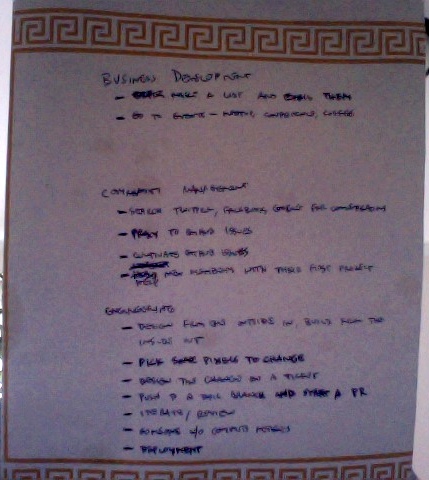 BUSINESS DEVELOPMENT
- MAKE A LIST AND EMAIL THEM
- GO TO EVENTS - MEETUPS, CONFERENCES,
COMMUNITY MANAGEMENT
- SEARCH TWITTER, FACEBOOK, GOOGLE FOR CONVERSATIONS
- REPLY TO GITHUB ISSUES
- CULTIVATE GITHUB ISSUES
- HELP NEW MEMBERS WITH THEIR FIRST PROJECT
ENGINEERING
- DESIGN FROM THE OUTSIDE IN, BUILD FROM THE
INSIDE OUT
- PICK SOME PIXELS TO CHANGE
- DESIGN THE CHANGE ON A TICKET
- PUSH TO A TOPIC BRANCH AND START A PR
- ITERATE / REVIEW
- SOMEONE W/O COMMITS MERGES
- DEPLOYMENT